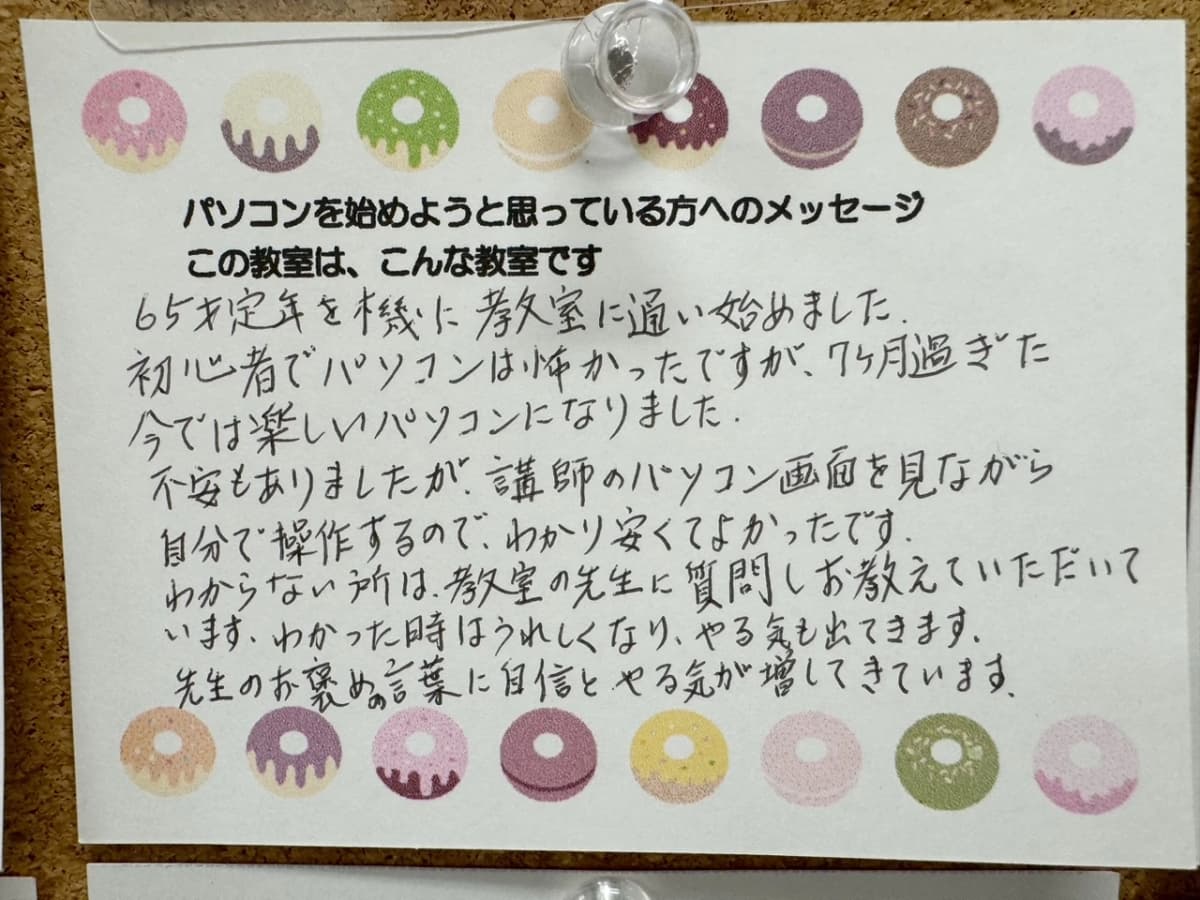 パソコンを始めようと思っている方へのメッセージ
この教室は、こんな教室です
65才定年を機に教室に通い始めました.
初心者でパソコンは怖かったですが、7ヶ月過ぎた
今では楽しいパソコンになりました.
不安もありましたが、講師のパソコン画面を見ながら
自分で操作するので、わかり安くてよかったです.
わからない所は、教室の先生に質問しお教えていただいて
います. わかった時はうれしくなり、やる気も出てきます.
先生のお褒めの言葉に自信とやる気が増してきています.